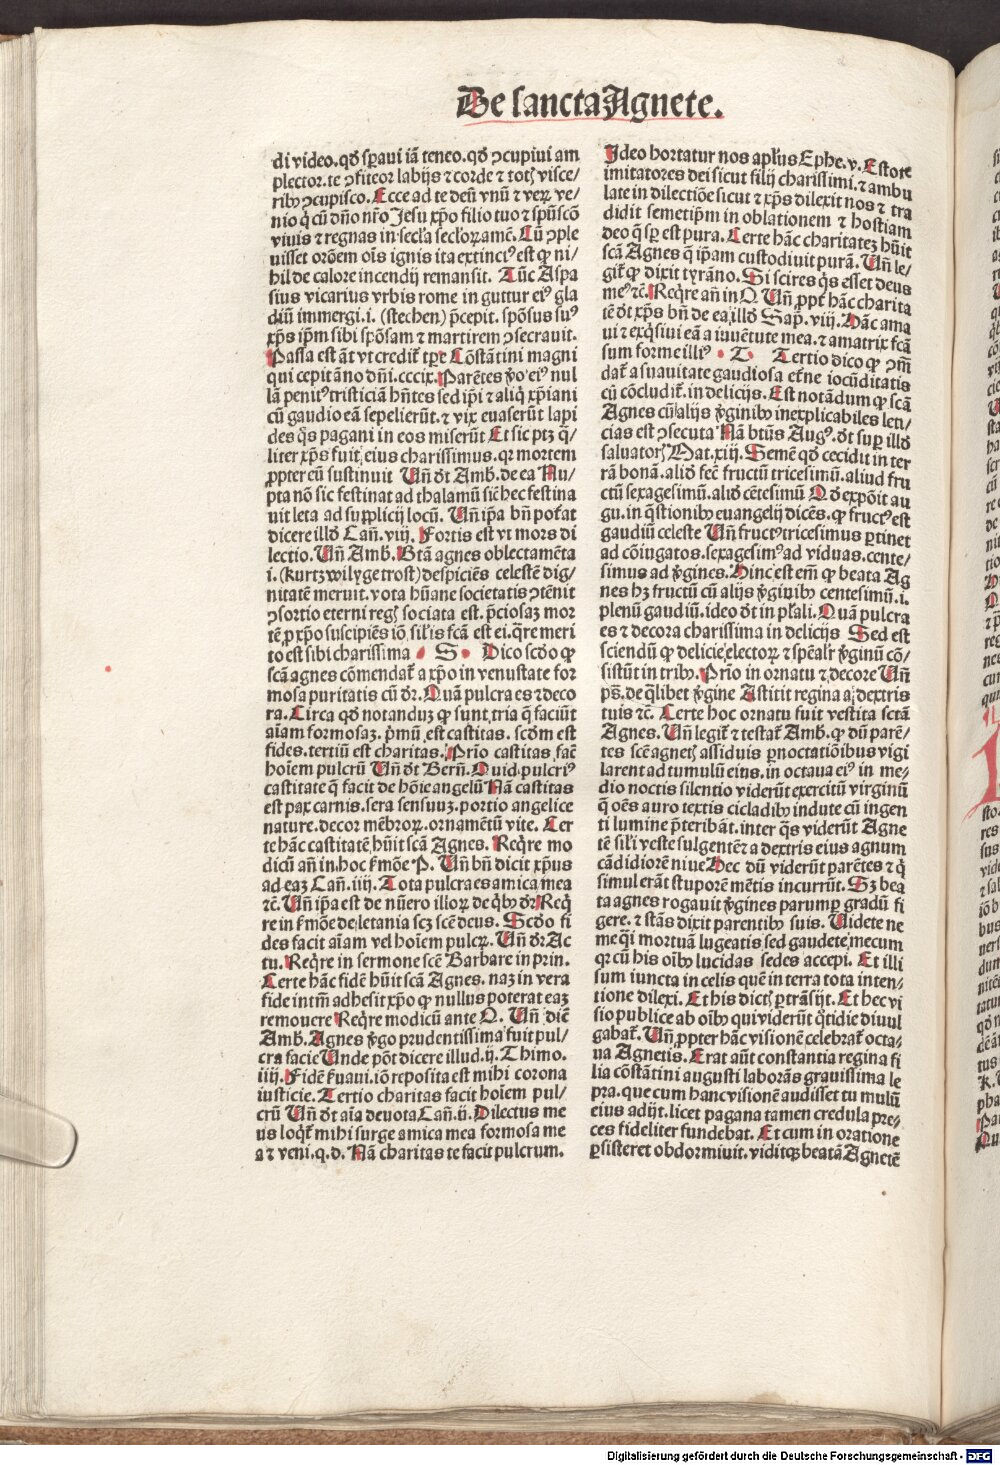 De sancta Agnete.
di video.qđ sꝑaui iã teneo.qđ ꝯcupiui am
plector.te ꝯfiteor labijs ⁊ corde ⁊ totꝭ visce/
ribꝰ ꝯcupisco. Ecce ad te deũ vnũ ⁊ veꝝ ve/
nio q̇ cũ dño nr̃o Jesu xp̃o filio tuo ⁊ spũscõ
viuis ⁊ regnas in secl̃a secloꝝ amẽ. Cũ ꝯple
uisset orõem oĩs ignis ita extinctꝰ est ꝙ ni/
hil de calore incendij remansit. Tũc Aspa
sius vicarius vrbis rome in guttur eiꝰ gla
diũ immergi.i. (stechen) p̃cepit. spõsus suꝰ
xp̃s ip̃m sibi spõsam ⁊ martirem ꝯsecrauit.
Passa est ãt vt credit̃ tꝑe Cõstãtini magni
qui cepit ãno dñi.cccix. Parẽtes ꝟo eiꝰ nul
lã penitꝰ tristiciã hñtes sed ip̃i ⁊ aliq̇ xp̃iani
cũ gaudio eã sepelierũt. ⁊ vix euaserũt lapi
des q̃s pagani in eos miserũt Et sic ptꝫ q̃/
liter xp̃s fuit eius charissimus. qꝛ mortem
ꝓpter eũ sustinuit Uñ đt Amb. de ea Nu/
pta nõ sic festinat ad thalamũ sic̃ hec festina
uit leta ad supplicij locũ. Uñ ip̃a bñ potat̃
dicere illđ Cañ. viij. Fortis est vt mors di
lectio. Uñ Amb. Btã agnes oblectamẽta
i. (kurtzwilyge trost) despiciẽs celestẽ dig/
nitatẽ meruit. vota hũane societatis ꝯtẽnit
ꝯsortio eterni regꝭ sociata est. p̃ciosaꝫ mor
tẽ ꝓ xp̃o suscipiẽs iõ sil̃is fc̃a est ei. q̃re meri
to est sibi charissima . S . Dico scđo ꝙ
scã agnes cõmendat̃ a xp̃o in venustate for
mosa puritatis cũ đr. Quã pulcra es ⁊ deco
ra. Circa qđ notanduꝫ ꝙ sunt tria q̃ faciũt
aĩam formosaꝫ. p̃mũ est castitas. scđm est
fides. tertiũ est charitas. Prĩo castitas fac̃
hoĩem pulcrũ Uñ đt Berñ. Quid pulcriꝰ
castitate q̃ facit de hoĩe angelũ Nã castitas
est pax carnis. sera sensuuꝫ. portio angelice
nature. decor mẽbroꝝ. ornamẽtũ vite. Cer
te hãc castitatẽ hũit scã Agnes. Req̃re mo
dicũ añ in hoc ẜmõe P. Uñ bñ dicit xp̃us
ad eaꝫ Cañ. iiij. Tota pulcra es amica mea
⁊c̃. Uñ ip̃a est de nũero illoꝝ de q̇bꝰ đr Req̃
re in ẜmõe de letania scꝫ scẽ deus. Scđo fi
des facit aĩam vel hoĩem pulcꝝ. Uñ đr Ac
tu. Req̃re in sermone scẽ Barbare in prin.
Certe hãc fidẽ hũit scã Agnes. naꝫ in vera
fide intm̃ adhesit xp̃o ꝙ nullus poterat eaꝫ
remouere Req̃re modicũ ante Q. Uñ dic̃
Amb. Agnes ꝟgo prudentissima fuit pul/
cra facie Unde põt dicere illud.ij. Thimo.
iiij. Fidẽ ẜuaui. iõ reposita est mihi corona
iusticie. Tertio charitas facit hoĩem pul/
crũ Uñ đt aĩa deuota Cañ. ij. Dilectus me
us loq̃t̃ mihi surge amica mea formosa me
a ⁊ veni. q. d. Nã charitas te facit pulcrum.
Ideo hortatur nos apl̃us Ephe. v. Estote
imitatores dei sicut filij charissimi. ⁊ ambu
late in dilectiõe sicut ⁊ xp̃s dilexit nos ⁊ tra
didit semetip̃m in oblationem ⁊ hostiam
deo q̃ sꝑ est pura. Certe hãc charitateꝫ hũit
scã Agnes q̃ ip̃am custodiuit purã. Uñ le/
git̃ ꝙ dixit tyrãno. Si scires q̇s esset deus
meꝰ ⁊c̃. Req̃re añ in O Uñ ꝓpt̃ hãc charita
tẽ đt xp̃s bñ de ea illđ Sap̃. viij. Hãc ama
ui ⁊ exq̇siui eã a iuuẽtute mea. ⁊ amatrix fc̃a
sum forme illiꝰ . T . Tertio dico ꝙ ꝯm̃
dat̃ a suauitate gaudiosa etn̄e iocũditatis
cũ cõcludit̃. in delicijs. Est notãdum ꝙ scã
Agnes cũ alijs ꝟginibꝰ inexplicabiles leti/
cias est ꝯsecuta Nã btũs Augꝰ. đt suꝑ illđ
saluatorꝭ Mat. xiij. Semẽ qđ cecidit in ter
rã bonã. aliđ fec̃ fructũ tricesimũ. aliud fru
ctũ sexagesimũ. aliđ cẽtesimũ Qđ expõit au
gu. in q̃stionibꝰ euangelij dicẽs. ꝙ fructꝰ est
gaudiũ celeste Uñ fructꝰ tricesimus ꝑtinet
ad cõiugatos. sexagesimꝰ ad viduas. cente/
simus ad ꝟgines. Hinc est em̃ ꝙ beata Ag
nes hꝫ fructũ cũ alijs ꝟginibꝰ centesimũ. i.
plenũ gaudiũ. ideo đt in p̃lali. Quã pulcra
es ⁊ decora charissima in delicijs Sed est
sciendũ ꝙ delicie electoꝝ ⁊ spẽal̃r ꝟginũ cõ/
sistũt in tribꝰ. Prĩo in ornatu ⁊ decore Uñ
ps̃. de q̃libet ꝟgine Astitit regina a dextris
tuis ⁊c̃. Certe hoc ornatu fuit vestita sctã
Agnes. Uñ legit̃ ⁊ testat̃ Amb. ꝙ dũ parẽ/
tes scẽ agnetꝭ assiduis ꝑnoctatiõibus vigi
larent ad tumulũ eius. in octaua eiꝰ in me/
dio noctis silentio viderũt exercitũ virginũ
q̃ oẽs auro textis cicladibꝰ indute cũ ingen
ti lumine p̃teribãt. inter q̃s viderũt Agne
tẽ sil̃i veste fulgentẽ ⁊ a dextris eius agnum
cãdidiorẽ niue Hec dũ viderũt parẽtes ⁊ q̇
simul erãt stuporẽ mẽtis incurrũt. Sꝫ bea
ta agnes rogauit ꝟgines parumꝑ gradũ fi
gere. ⁊ stãs dixit parentibꝰ suis. Uidete ne
me q̃i mortuã lugeatis sed gaudete mecum
qꝛ cũ his oĩbꝰ lucidas sedes accepi. Et illi
sum iuncta in celis quẽ in terra tota inten/
tione dilexi. Et his dictꝭ ꝑtrãsijt. Et hec vi
sio publice ab oĩbꝰ qui viderũt q̃tidie diuul
gabat̃. Uñ ꝓpter hãc visionẽ celebrat̃ octa/
ua Agnetis. Erat aũt constantia regina fi
lia cõstãtini augusti laborãs grauissima le
pra. que cum hanc visionẽ audisset tumulũ
eius adijt. licet pagana tamen credula pre/
ces fideliter fundebat. Et cum in oratione
ꝑsisteret obdormiuit. viditqꝫ beatã Agnetẽ
Digitalisierung gefördert durch die Deutsche Forschungsgemeinschaft - DFG